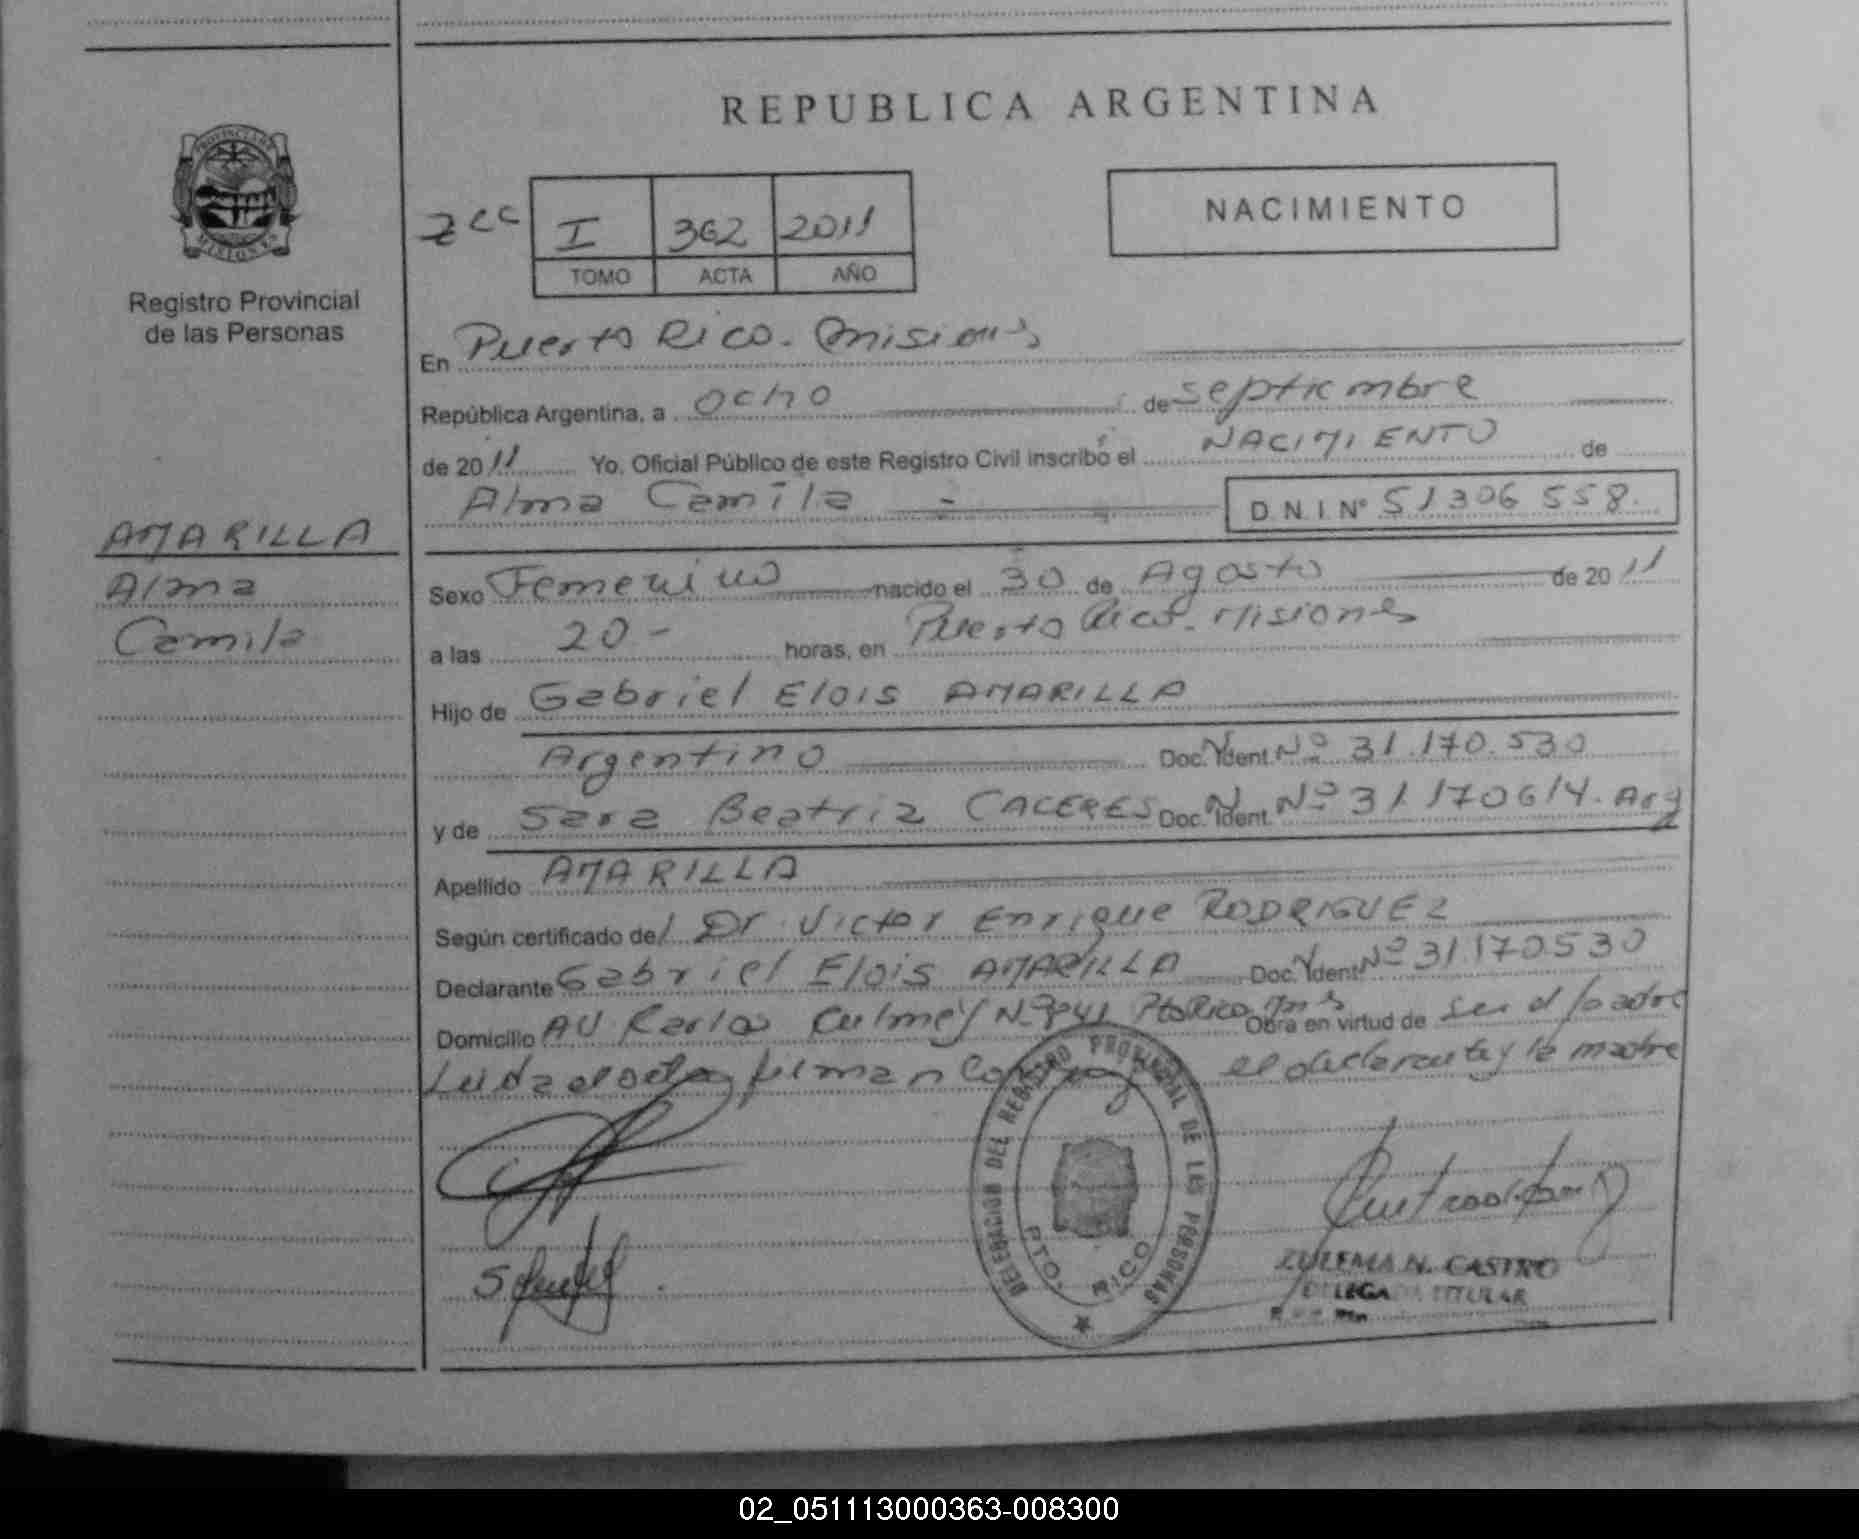 REPUBLICA ARGENTINA
PROVINCIA DE
MISIONES
Registro Provincial
de las Personas
I 362 2011
TOMO ACTA AÑO
NACIMIENTO
En Puerto Rico. Misiones
República Argentina, a ocho de septiembre
de 2011 Yo. Oficial Público de este Registro Civil inscribo el NACIMIENTO de
Alma Camila D.N.I Nº 51306558.
AMARILLA
Alma
Camila
Sexo Femenino nacido el 30 de Agosto de 2011
a las 20 - horas, en Puerto Rico. Misiones
Hijo de Gabriel Elois AMARILLA
Argentino Doc. Ident. Nº 31.170.530
y de Sara Beatriz CACERES Doc. Ident. Nº 31.170614. Arg
Apellido AMARILLA
Según certificado del Dr Victor Enrique RODRIGUEZ
Declarante Gabriel Elois AMARILLA Doc. Ident Nº 31.170530
Domicilio AV Karlos Culmey Pto Rico Mnes Obra en virtud de ser el padre
Leida el acta firman el declarante y la madre
DELEGACION DEL REGISTRO PROVINCIAL DE LAS PERSONAS
PTO. RICO
ZULEMA N. CASTRO
DELEGADA TITULAR
02_051113000363-008300